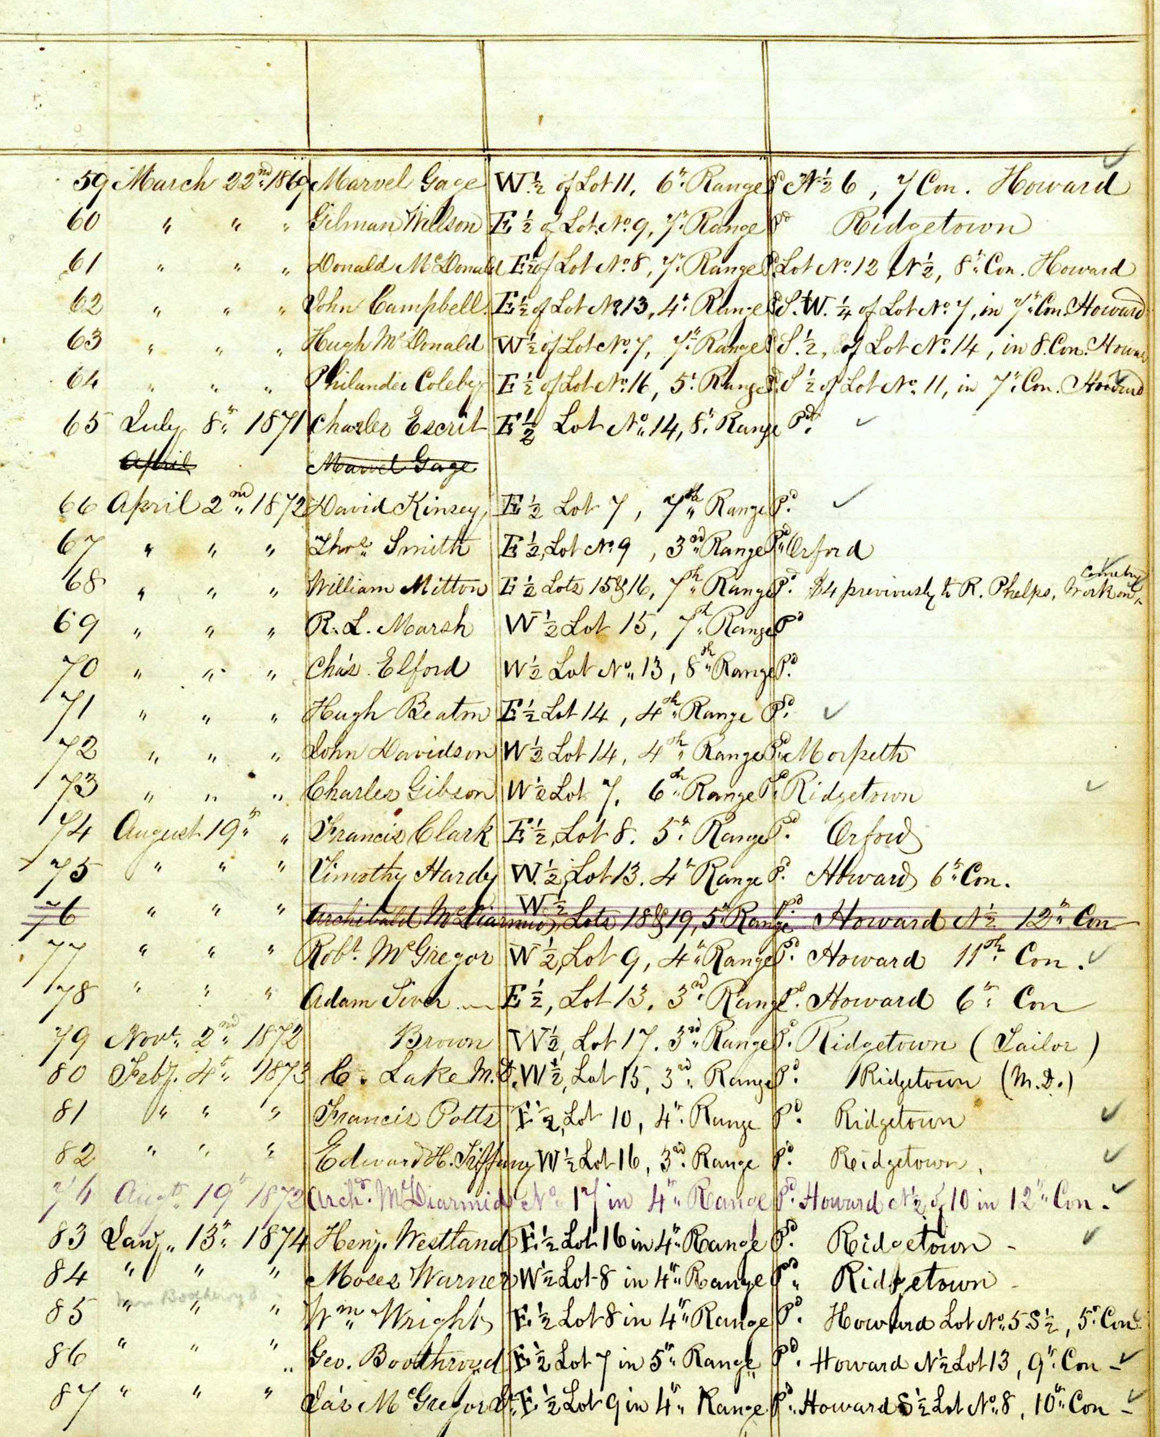 59 March 22nd 1869 Marvel Gage W ½ of Lot 11, 6" Range Pd N ½ 6, 7 Con. Howard
60 " " " Gilman Willson E ½ of Lot No 9, 7" Range Pd Ridgetown
61 " " " Donald McDonald E ½ of Lot No 8, 7" Range Pd Lot No 12 N ½, 8" Con. Howard
62 " " " John Campbell. E ½ of Lot No 13, 4" Range Pd S. W. ¼ of Lot No 7, in 7" Con. Howard
63 " " " Hugh McDonald W ½ of Lot No 7, 7" Range Pd S. ½, of Lot No 14, in 8 Con. Howard
64 " " " Philander Coleby E ½ of Lot No 16, 5" Range Pd S ½ of Lot No. 11, in 7" Con. Howard
65 July 8" 1871 Charles Escrit E ½ Lot No 14, 8" Range Pd. ✓
April Marvel Gage
66 April 2nd 1872 David Kinsey, E ½ Lot 7, 7th Range Pd. ✓
67 " " " Thos Smith E ½, Lot No 9, 3rd Range Pd Orford
68 " " " William Mitton E ½ Lots 15 & 16, 7th Range Pd. $4 previously to R. Phelps, Work on Cemetry
69 " " " R. L. Marsh W ½ Lot 15, 7th Range Pd
70 " " " Chas. Elford W ½ Lot No 13, 8th Range Pd.
71 " " " Hugh Beaton E ½ Lot 14, 4th Range Pd. ✓
72 " " " John Davidson W ½ Lot 14, 4th Range Pd. Morpeth
73 " " " Charles Gibson W ½ Lot 7, 6th Range Pd Ridgetown ✓
74 August 19" " Francis Clark E ½, Lot 8. 5" Range Pd. Orford
75 " " " Timothy Hardy W. ½, Lot 13. 4" Range Pd. Howard 6" Con.
76 " " " Archibald McDiarmid, W. ½ Lots 18 & 19, 5" Range Pd. Howard N ½ 12" Con
77 " " " Robt. McGregor W ½, Lot 9, 4" Range Pd. Howard 11th Con. ✓
78 " " " Adam Siver E ½, Lot 13. 3rd Range Pd. Howard 6" Con
79 Novr. 2nd 1872 Brown W ½, Lot 17. 3rd Range Pd. Ridgetown (Tailor)
80 Feby. 4" 1873 C. Lake M.D. W ½, Lot 15, 3rd. Range Pd. Ridgetown (M.D.)
81 " " " Francis Potts E ½, Lot 10, 4" Range Pd. Ridgetown ✓
82 " " " Edward H. Tiffany W ½ Lot 16, 3rd. Range Pd. Ridgetown, ✓
76 Augt. 19" 1872 Archd. McDiarmid No 17 in 4" Range Pd. Howard N ½ of 10 in 12" Con. ✓
83 Jany. 13" 1874 Henj. Westland E ½ Lot 16 in 4" Range Pd. Ridgetown - ✓
84 " " " Moses Warner W ½ Lot 8 in 4" Range Pd. Ridgetown -
85 " " " Wm Wright E ½ Lot 8 in 4" Range Pd. Howard Lot No 5 S ½, 5" Con.
86 " " " Geo. Boothroyd E ½ Lot 7 in 5" Range Pd. Howard N ½ Lot 13, 9" Con - ✓
87 " " " Jas McGregor E ½ Lot 9 in 4" Range Pd. Howard S ½ Lot No 8, 10" Con - ✓